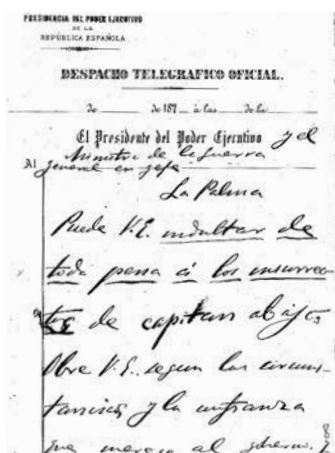 PRESIDENCIA DEL PODER EJECUTIVO
DE LA
REPÚBLICA ESPAÑOLA
DESPACHO TELEGRAFICO OFICIAL.
de de 187 á las de la
El Presidente del Poder Ejecutivo y el
Ministro de la Guerra
Al General en gefe
La Palma
Puede V.E. indultar de
toda pena á los insurrec
tos de capitan abajo
Obre V.E. segun las circuns-
tancias y la confianza
que merece al gobierno.